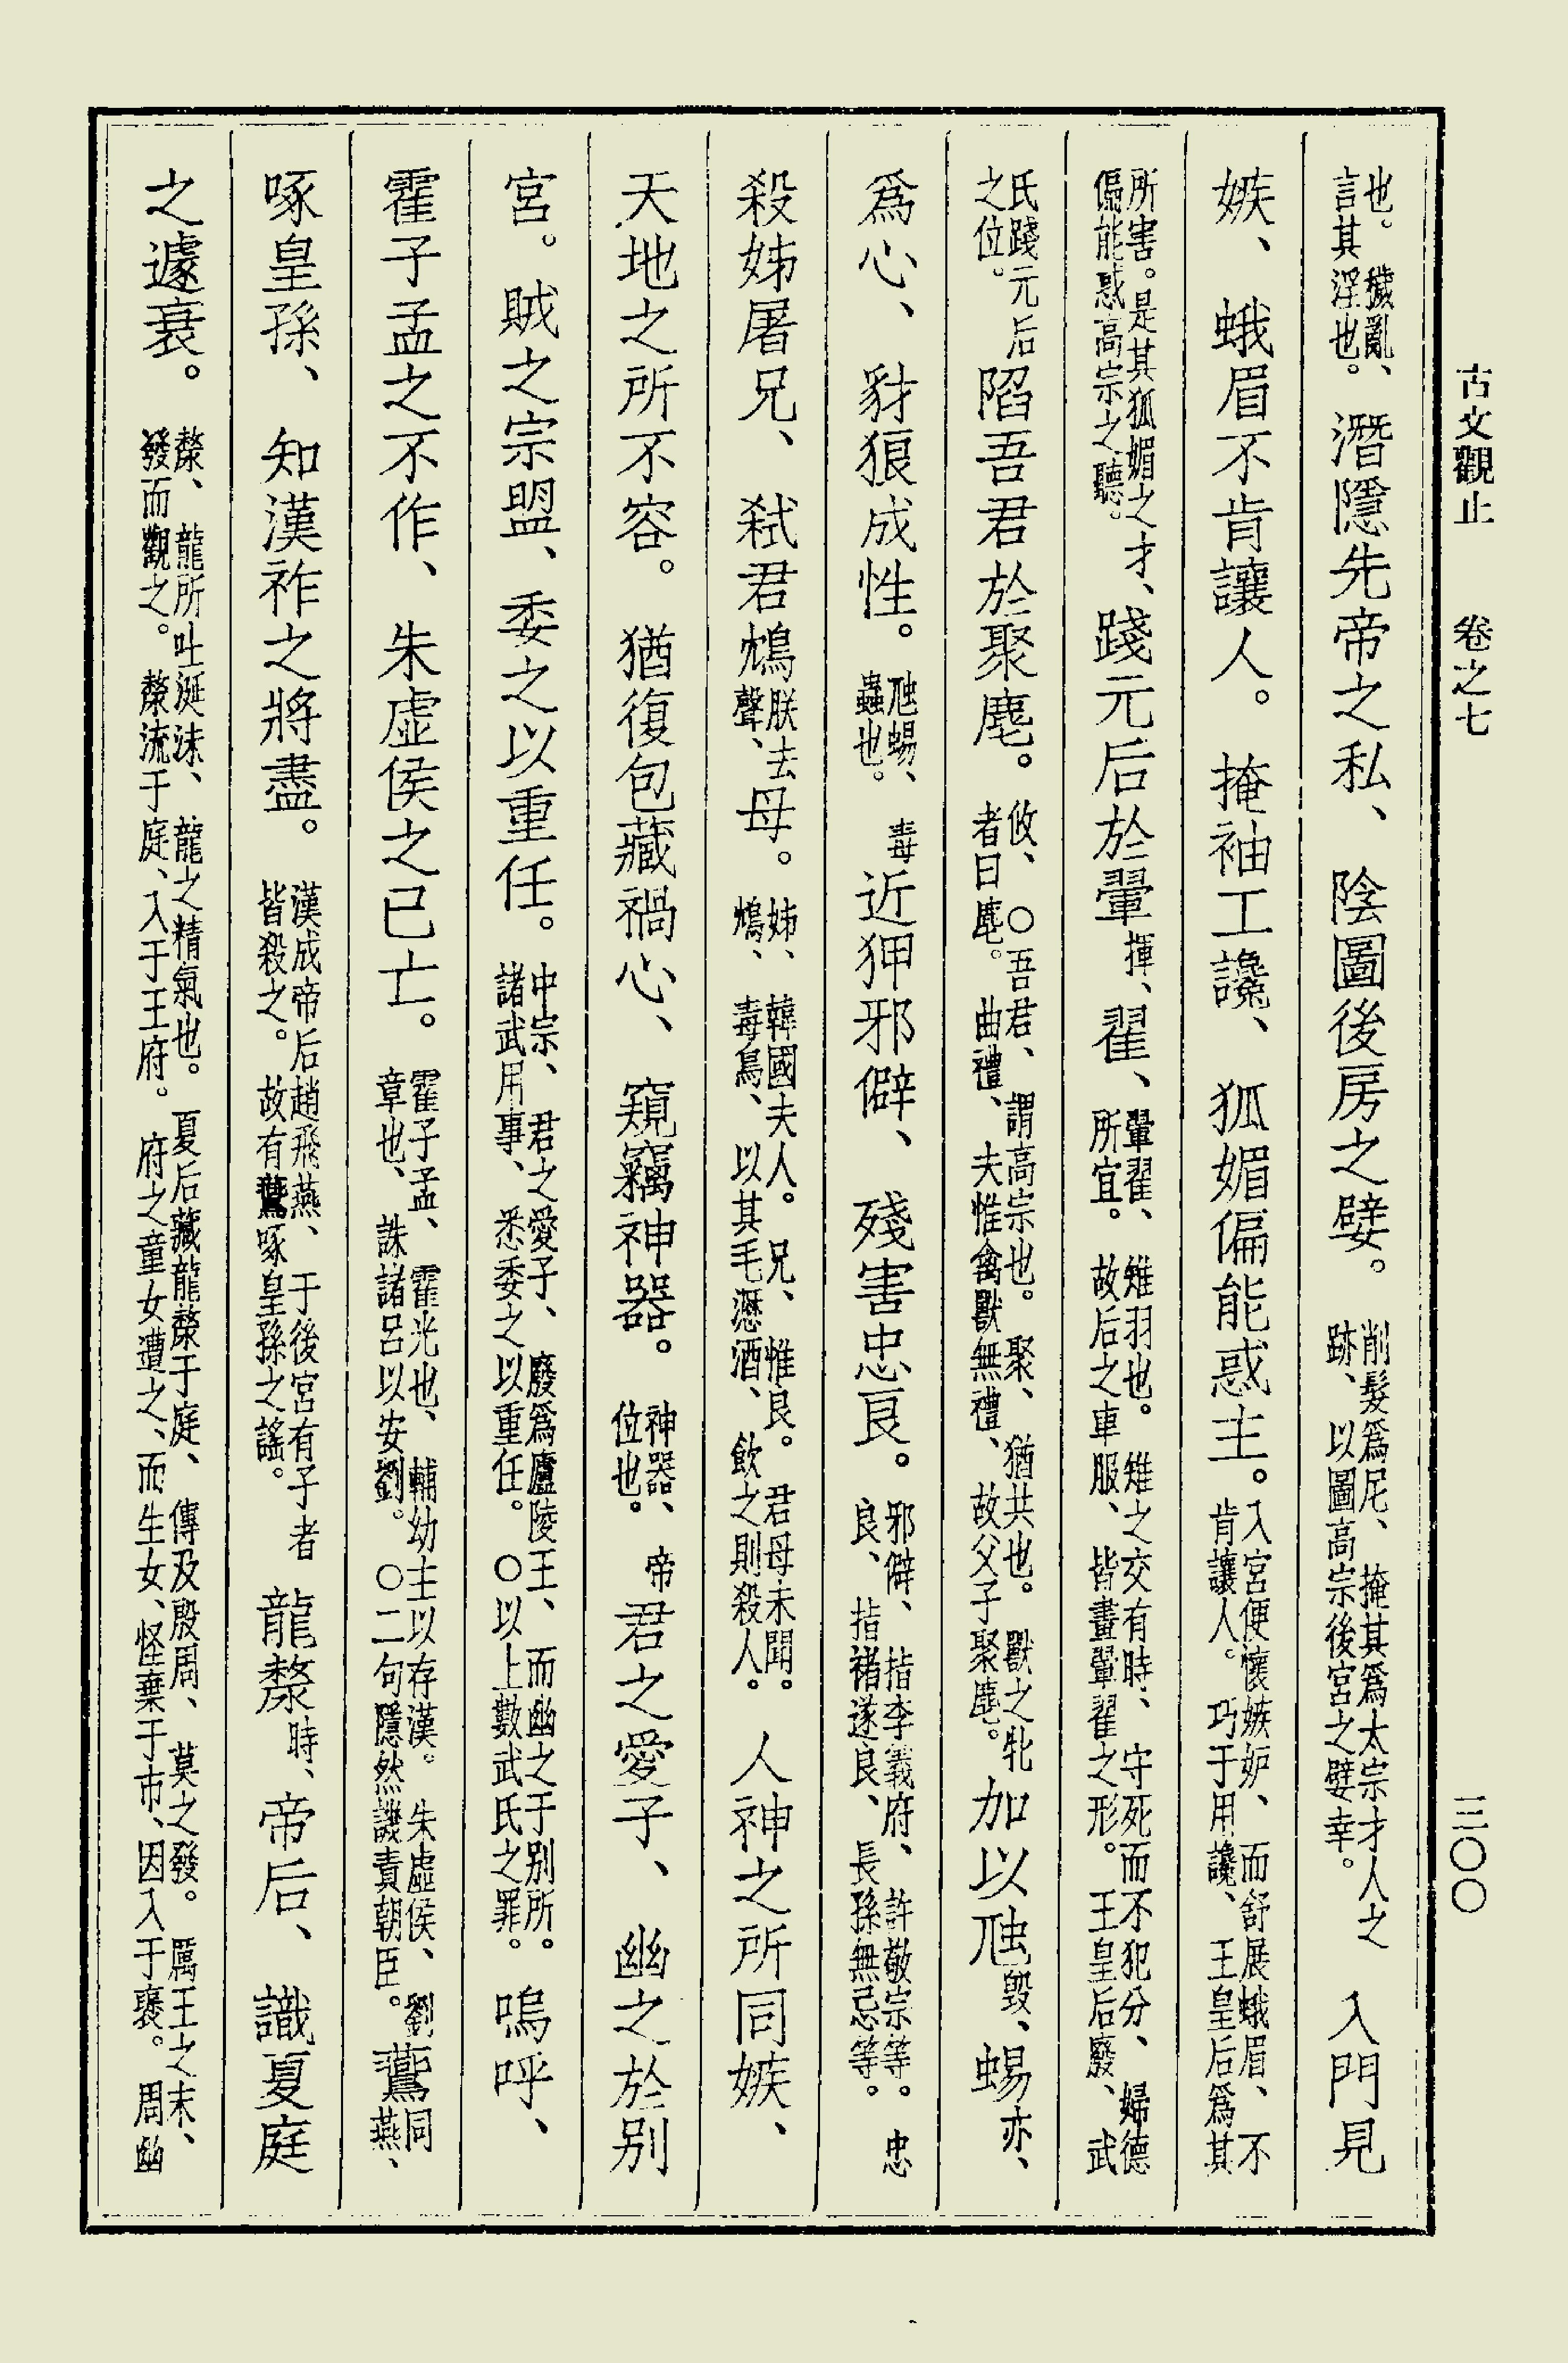 古文觀止　卷之七　三〇〇
也。穢亂、言其淫也。、潛隱先帝之私、陰圖後房之嬖。削髮爲尼、掩其爲太宗才人之跡、以圖高宗後宮之嬖幸。入門見
嫉、蛾眉不肯讓人。掩袖工讒、狐媚偏能惑主。入宮便懷嫉妒、而舒展蛾眉、不肯讓人。巧于用讒、王皇后爲其
所害。是其狐媚之才、偏能惑高宗之聽。踐元后於翬揮、翟、翬翟、雉羽也。雉之交有時、守死而不犯分、婦德所宜。故后之車服、皆畫翬翟之形。王皇后廢、武
氏踐元后之位。陷吾君於聚麀。攸、〇吾君、謂高宗也。聚、猶共也。獸之牝者曰麀。曲禮、夫惟禽獸無禮、故父子聚麀。加以虺毀、蜴亦、
爲心、豺狼成性。虺蜴、毒蟲也。近狎邪僻、殘害忠良。邪僻、指李義府、許敬宗等。忠良、指褚遂良、長孫無忌等。
殺姊屠兄、弑君鴆朕去聲、母。姊、韓國夫人。兄、惟良。君母未聞。鴆、毒鳥、以其毛瀝酒、飲之則殺人。人神之所同嫉、
天地之所不容。猶復包藏禍心、窺竊神器。神器、帝位也。君之愛子、幽之於別
宮。賊之宗盟、委之以重任。中宗、君之愛子、廢爲廬陵王、而幽之于別所。諸武用事、悉委之以重任。〇以上數武氏之罪。嗚呼、
霍子孟之不作、朱虛侯之已亡。霍子孟、霍光也、輔幼主以存漢。朱虛侯、劉章也、誅諸呂以安劉。〇二句隱然譏責朝臣。鷰同燕、
啄皇孫、知漢祚之將盡。漢成帝后趙飛燕、于後宮有子者皆殺之。故有鷰啄皇孫之謠。龍漦時、帝后、識夏庭
之遽衰。漦、龍所吐涎沫、龍之精氣也。夏后藏龍漦于庭、傳及殷周、莫之發。厲王之末、發而觀之。漦流于庭、入于王府。府之童女遭之、而生女、怪棄于市、因入于褒。周幽